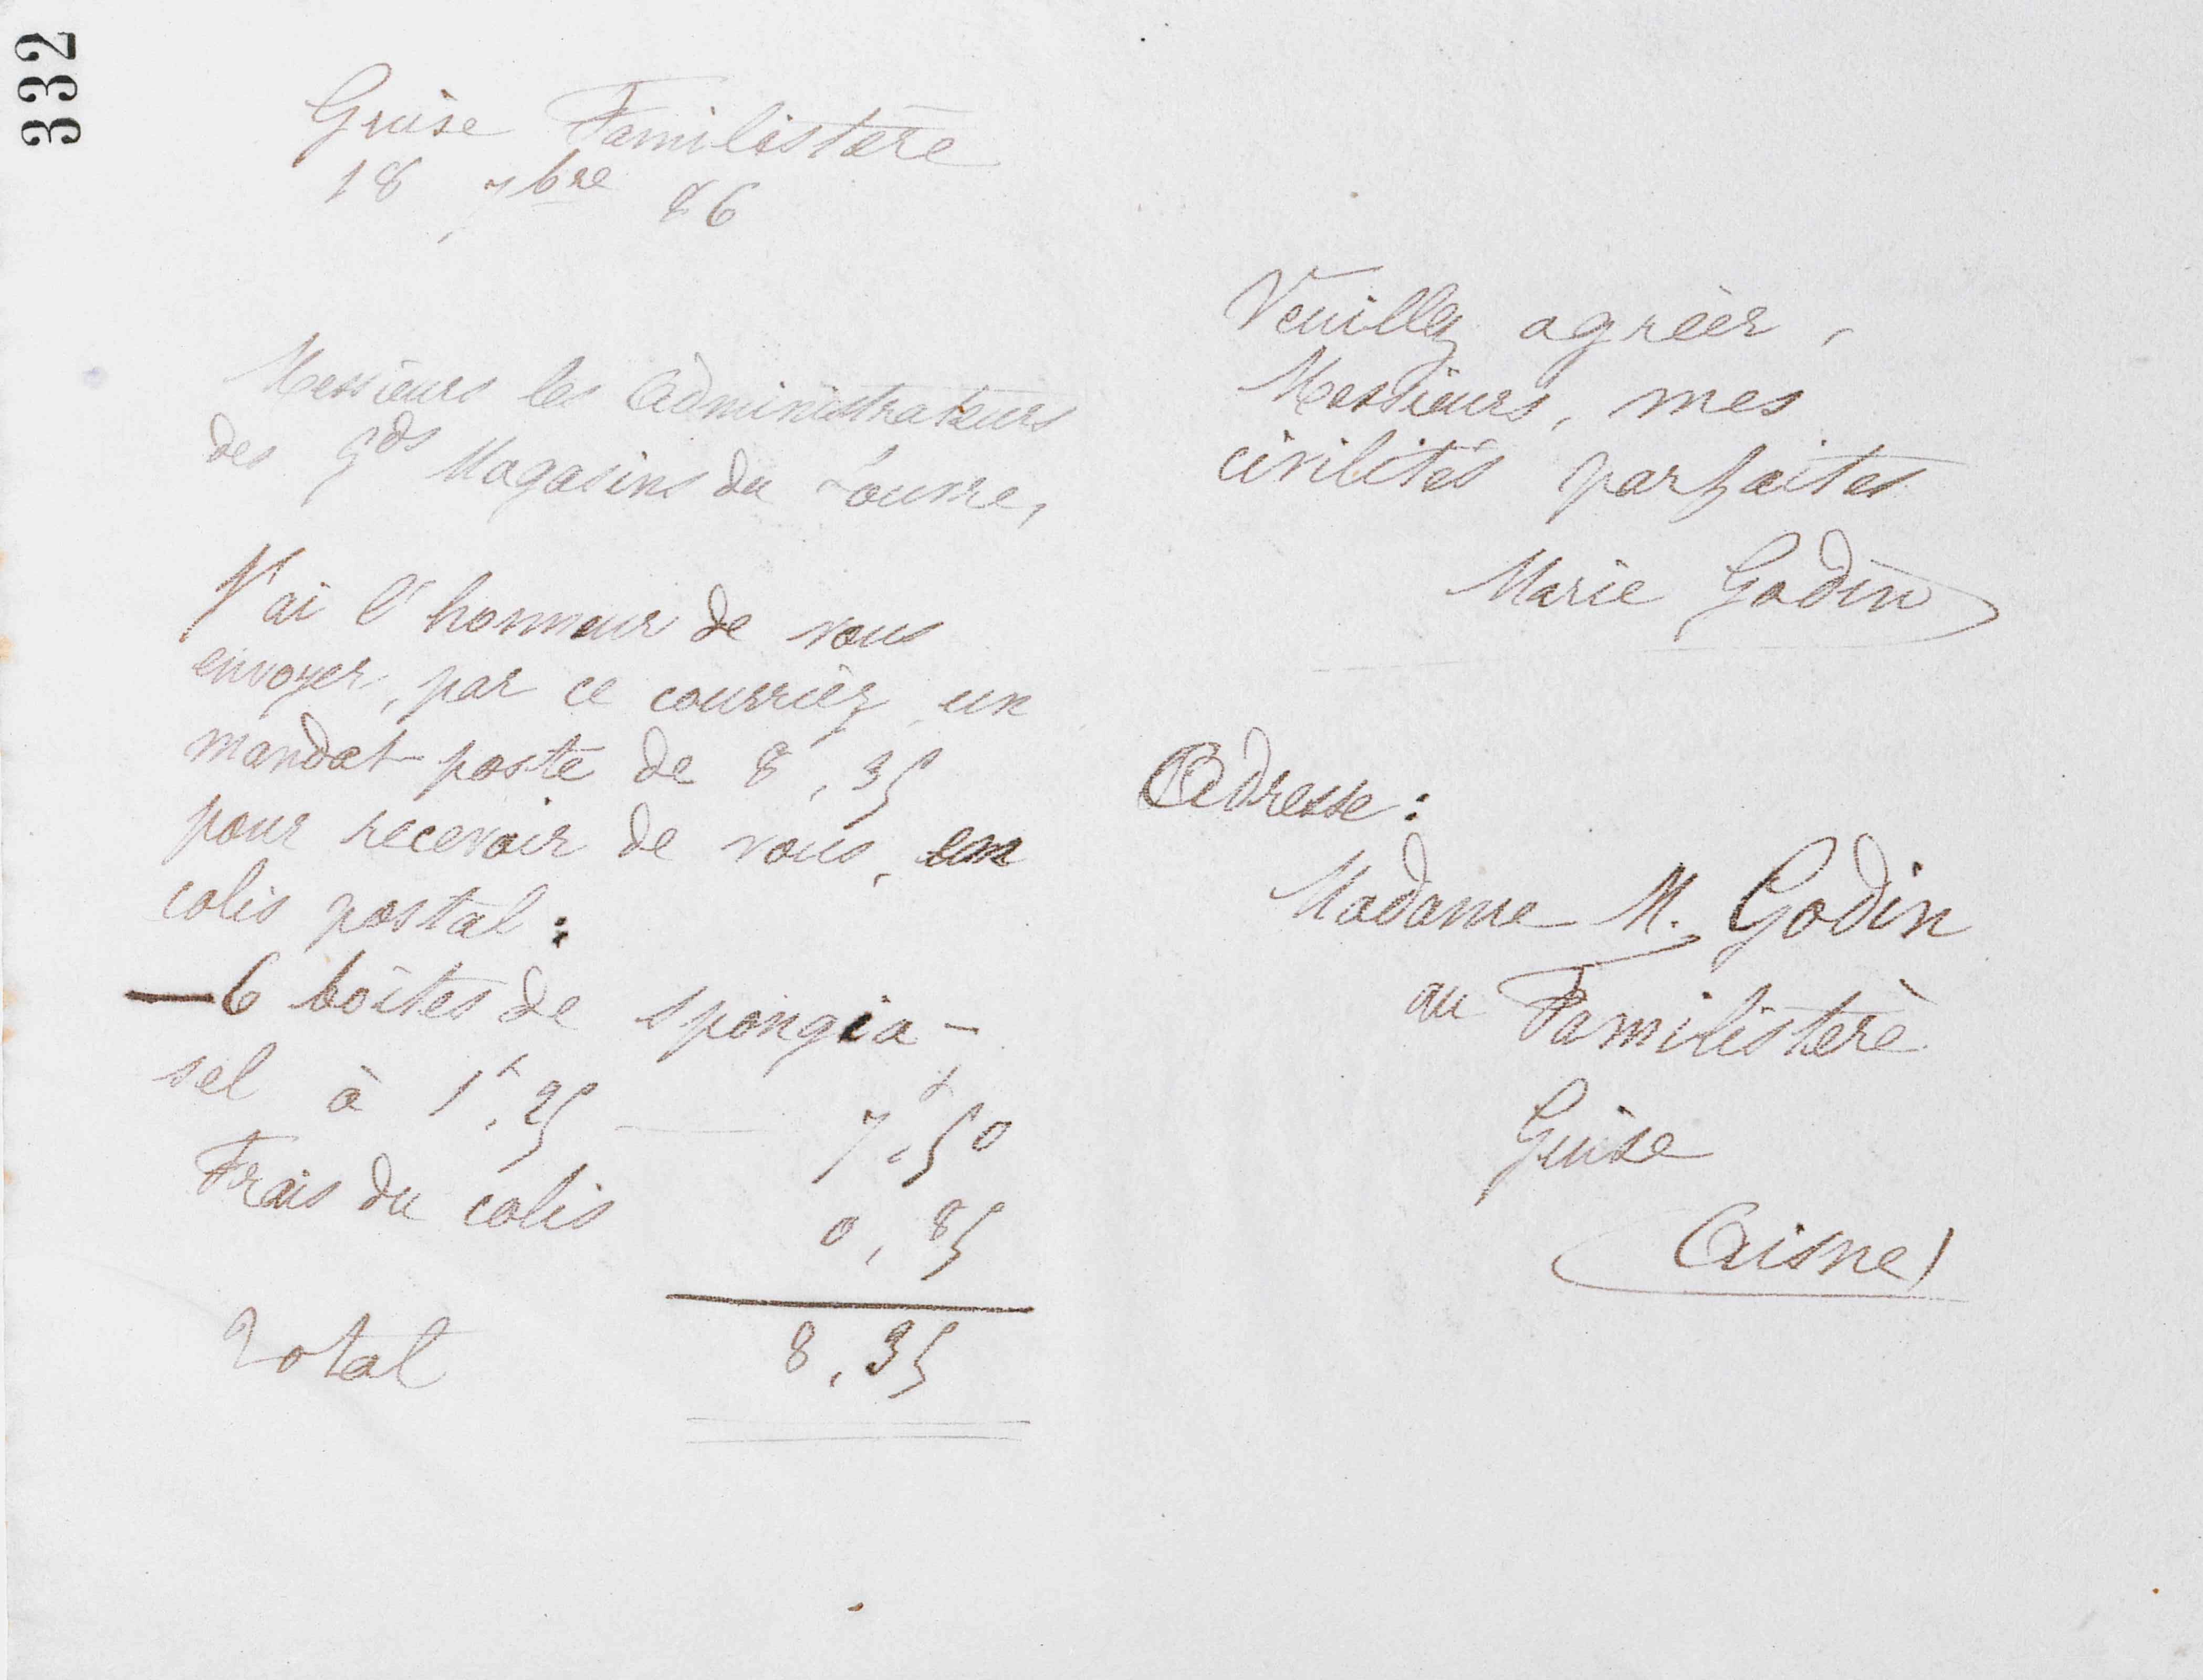 332
Guise Familistère
18 7bre 86
Messieurs les Administrateurs
des Gds Magasins du Louvre,
J'ai l'honneur de vous
envoyer, par ce courrier, un
mandat-poste de 8,35
pour recevoir de vous, en
colis postal :
— 6 boîtes de spongia-
sel à 1f,25 — 7f,50
Frais du colis 0,85
Total 8,35
Veuillez agréer,
Messieurs, mes
civilités parfaites
Marie Godin
Adresse :
Madame M. Godin
au Familistère
Guise
(Aisne)